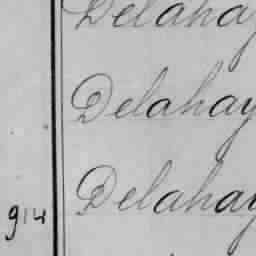 Delahay
Delahay
914 Delahay